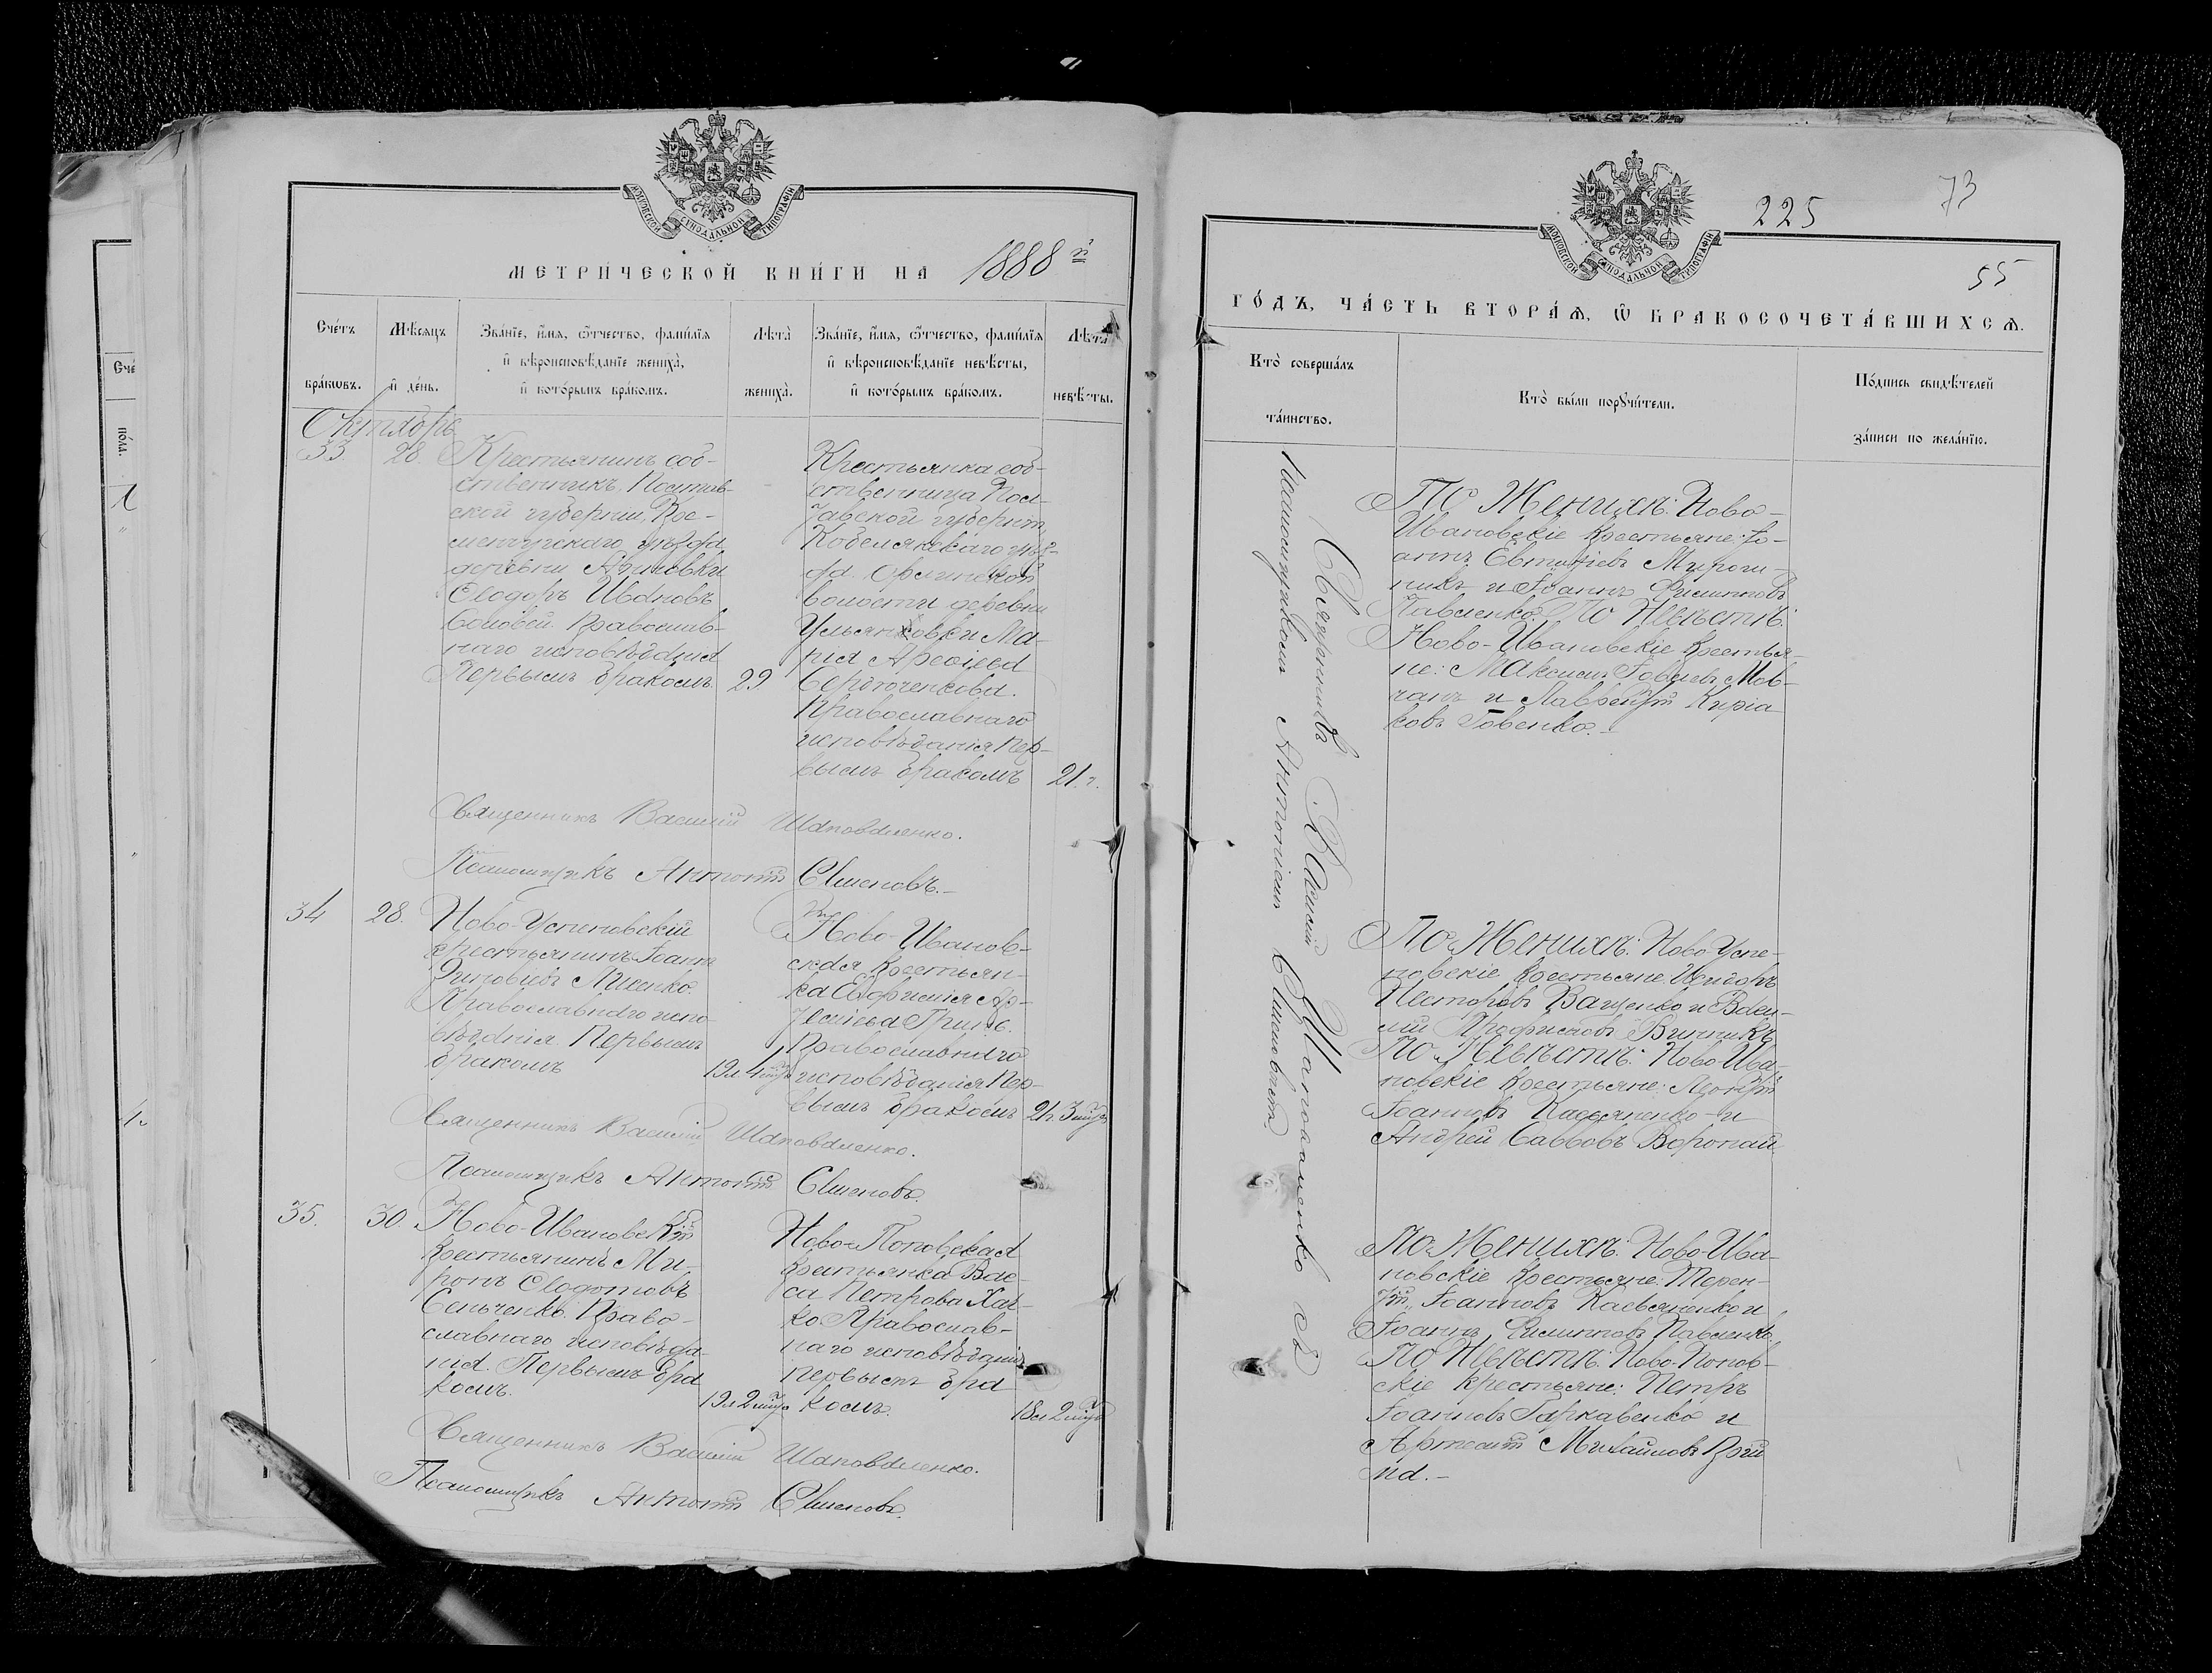 МОСКОВСКОЙ СѴНОДАЛЬНОЙ ТИПОГРАФІИ
МЕТРИ́ЧЕСКОЙ КНИ́ГИ НА 1888 й
Сче́тъ бра́кωвъ.
Мѣ́сяцъ и҆ де́нь.
Зва́нїе, и҆́мя, ѻ҆́тчество, фами́лїя
и҆ вѣроисповѣ́данїе жениха̀,
и҆ кото́рымъ бра́комъ.
Лѣта̀ жениха̀.
Зва́нїе, и҆́мя, ѻ҆́тчество, фами́лїя
и҆ вѣроисповѣ́данїе невѣ́сты,
и҆ кото́рымъ бра́комъ.
Лѣта̀ невѣ́сты.
Октябрь
33.
28.
Крестьянинъ соб-
ственникъ, Полтав-
ской губерніи, Кре-
менчугскаго уѣзда
деревни
Ѳеодоръ Ивановъ
Соловей. Православ-
наго исповѣданія
Первымъ бракомъ.
29
Крестьянка соб-
ственница Пол-
тавской губерніи,
Кобелякскаго уѣз-
да
волости деревни
Ульяновки Ма-
рія
Православнаго
исповѣданія Пер-
вымъ бракомъ
21. г.
Священникъ Василій Шаповаленко.
Псаломщикъ Антоній Сѣменовъ.-
34
28.
Ново-Успеновскій
крестьянинъ Іоаннъ
Зиновіевъ Лисенко.
Православнаго испо-
вѣданія Первымъ
бракомъ
19 л 4
Ново-Иванов-
ская Крестьян-
ка Евфимія Ар-
Гринь.
Православнаго
исповѣданія Пер-
вымъ бракомъ
21 г. 3
Священникъ Василій Шаповаленко.
Псаломщикъ Антоній Сѣменовъ.
35.
30.
Ново-Ивановскій
Крестьянинъ Ми-
ронъ Ѳеодотовъ
Сельченко. Право-
славнаго исповѣда-
нія. Первымъ бра
комъ.
19 л 2
Ново-Поповская
Крестьянка Вас-
са Петрова
ко. Православ-
наго исповѣданія
первымъ бра
комъ.
18 л 2
Священникъ Василій Шаповаленко.
Псаломщикъ Антоній Сѣменовъ.
МОСКОВСКОЙ СѴНОДАЛЬНОЙ ТИПОГРАФІИ
225
73
55
ГО́ДЪ, ЧА́СТЬ ВТОРА́Ѧ, Ѽ БРАКОСОЧЕТА́ВШИХСѦ.
Кто̀ соверша́лъ
та́инство.
Кто̀ бы́ли порꙋчи́тели.
По́дпись свидѣ́телей
за́писи по жела́нїю.
Священникъ Василій Шаповаленко съ
Псаломщикомъ Антоніемъ Сѣменовымъ
По Женихѣ: Ново-
Ивановскіе Крестьяне: Іо-
аннъ Евтихіевъ Мирош-
никъ и Іоаннъ Филипповъ
Павленко. По Невѣстѣ:
Ново-Ивановскіе Крестья-
не: Максимъ Іовлевъ Мов-
чанъ и Лаврентій Киріа
ковъ Говенко.-
По Женихѣ: Ново-Успе-
новскіе Крестьяне Исидоръ
Несторовъ Ващенко и Васи-
лій Трофимовъ Винникъ
По Невѣстѣ: Ново-Ива-
новскіе Крестьяне:
Іоанновъ Касьяненко и
Андрей Саввовъ Воропай
По Женихѣ: Ново-Ива-
новскіе Крестьяне: Терен-
тій Іоанновъ Касьяненко и
Іоаннъ Филипповъ Павленко.
По Невѣстѣ: Ново-Попов-
скіе крестьяне: Петръ
Іоанновъ Гаркавенко и
Михайловъ